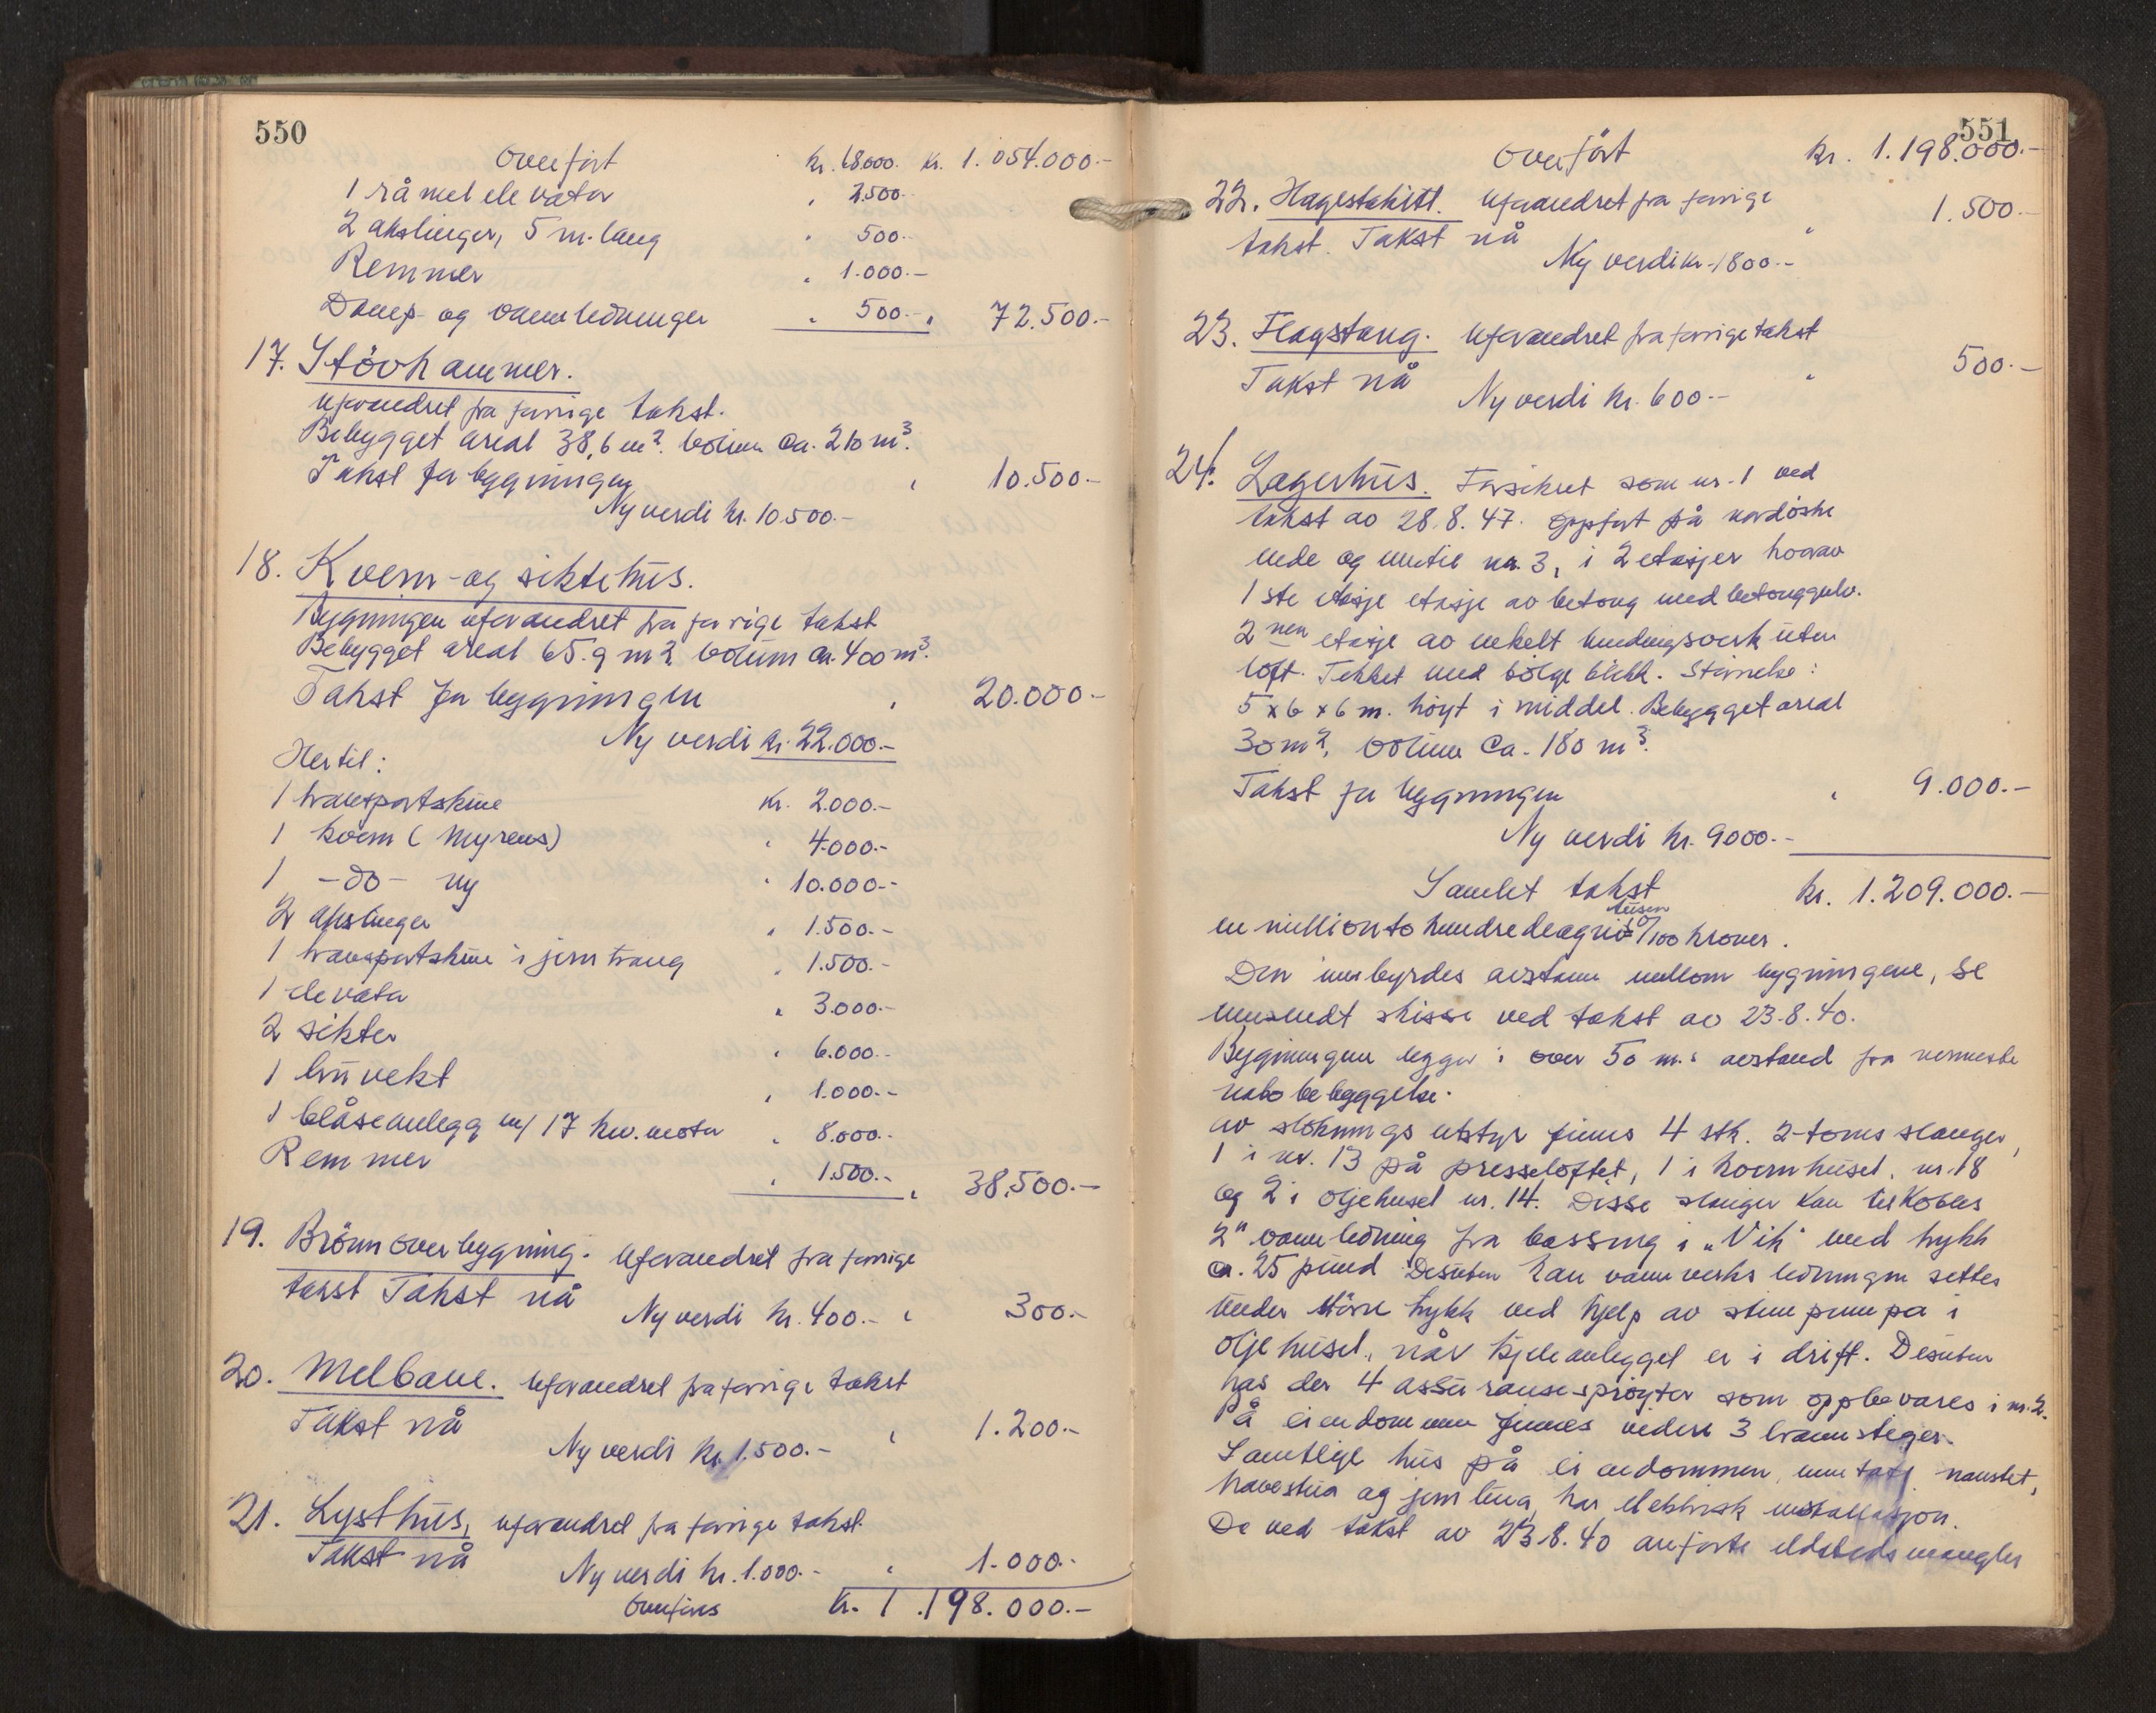 550
Overført kr. 68.000. kr. 1.054.000.-
1 råmel elevator " 2.500.-
2 akslinger, 5 m. lang " 500.-
Remmer " 1.000.-
Damp- og vannledninger " 500.- " 72.500.-
17. Stövkammer.
Uforandret fra forrige takst.
Bebygget areal 38,6 m². volum ca. 210 m³.
Takst for bygningen " 10.500.-
Ny verdi kr. 10.500.-
18. Kvern- og siktehus.
Bygningen uforandret fra forrige takst
Bebygget areal 65.9 m² volum ca. 400 m³.
Takst for bygningen " 20.000.-
Ny verdi kr. 22.000.-
Hertil:
1 transportskrue kr. 2.000.-
1 kvern (Myrens) " 4.000.-
1 -do- ny " 10.000.-
2 akslinger " 1.500.-
1 transportskrue i jern traug " 1.500.-
1 elevator " 3.000.-
2 sikter " 6.000.-
1 bruvekt " 1.000.-
1 blåseanlegg m/ 17 kw. motor " 8.000.-
Remmer " 1.500.- " 38.500.-
19. Brönnoverbygning. Uforandret fra forrige
takst Takst nå " 300.-
Ny verdi kr. 400.-
20. Melbane. Uforandret fra forrige takst
Takst nå " 1.200.-
Ny verdi kr. 1.500.-
21. Lysthus, uforandret fra forrige takst.
Takst nå " 1.000.-
Ny verdi kr. 1.000.-
Overføres kr. 1.198.000.-
551
Overført kr. 1.198.000.-
22. Hagestakitt. Uforandret fra forrige
takst. Takst nå " 1.500.-
Ny verdi kr. 1800.-
23. Flagstang. Uforandret fra forrige takst
Takst nå " 500.-
Ny verdi kr. 600.-
24. Lagerhus. Forsikret som nr. 1 ved
takst av 28.8.47. Oppført på nordöstre
ende og inntil nr. 3, i 2 etasjer hvorav
1ste etasje etasje av betong med betonggulv.
2nen etasje av enkelt bindingsverk uten
loft. Tekket med bölgeblikk. Störrelse:
5 x 6 x 6 m. höyt i middel. Bebygget areal
30 m², volum ca. 180 m³.
Takst for bygningen " 9.000.-
Ny verdi kr. 9000.-
Samlet takst kr. 1.209.000.-
en million to hundre deog ni tusen 0/100 kroner.
Den innbyrdes avstann mellom bygningene, se
innsendt skisse ved takst av 23.8.40.
Bygningen ligger i over 50 m.s avstand fra nermeste
nabobebyggelse.
Av sloknings utstyr finns 4 stk. 2-toms slanger,
1 i nr. 13 på presseloftet, 1 i kvernhuset nr. 18
og 2 i oljehuset nr. 14. Disse slanger kan tilkobles
2" vannledning fra basseng i „Vik" med trykk
ca. 25 pund Desuten kan vannverks ledningen settes
under större trykk ved hjelp av stimpumpa i
oljehuset, når kjeleanlegget er i drift. Desuten
has der 4 assuransesprøyter som oppbevares i nr. 2.
På eiendommen finnes videre 3 brannstiger.
Samtlige hus på eiendommen, unntatt naustet,
havestua og jernbua, har elektrisk installasjon.
De ved takst av 23.8.40 anførte ildstedsmangler